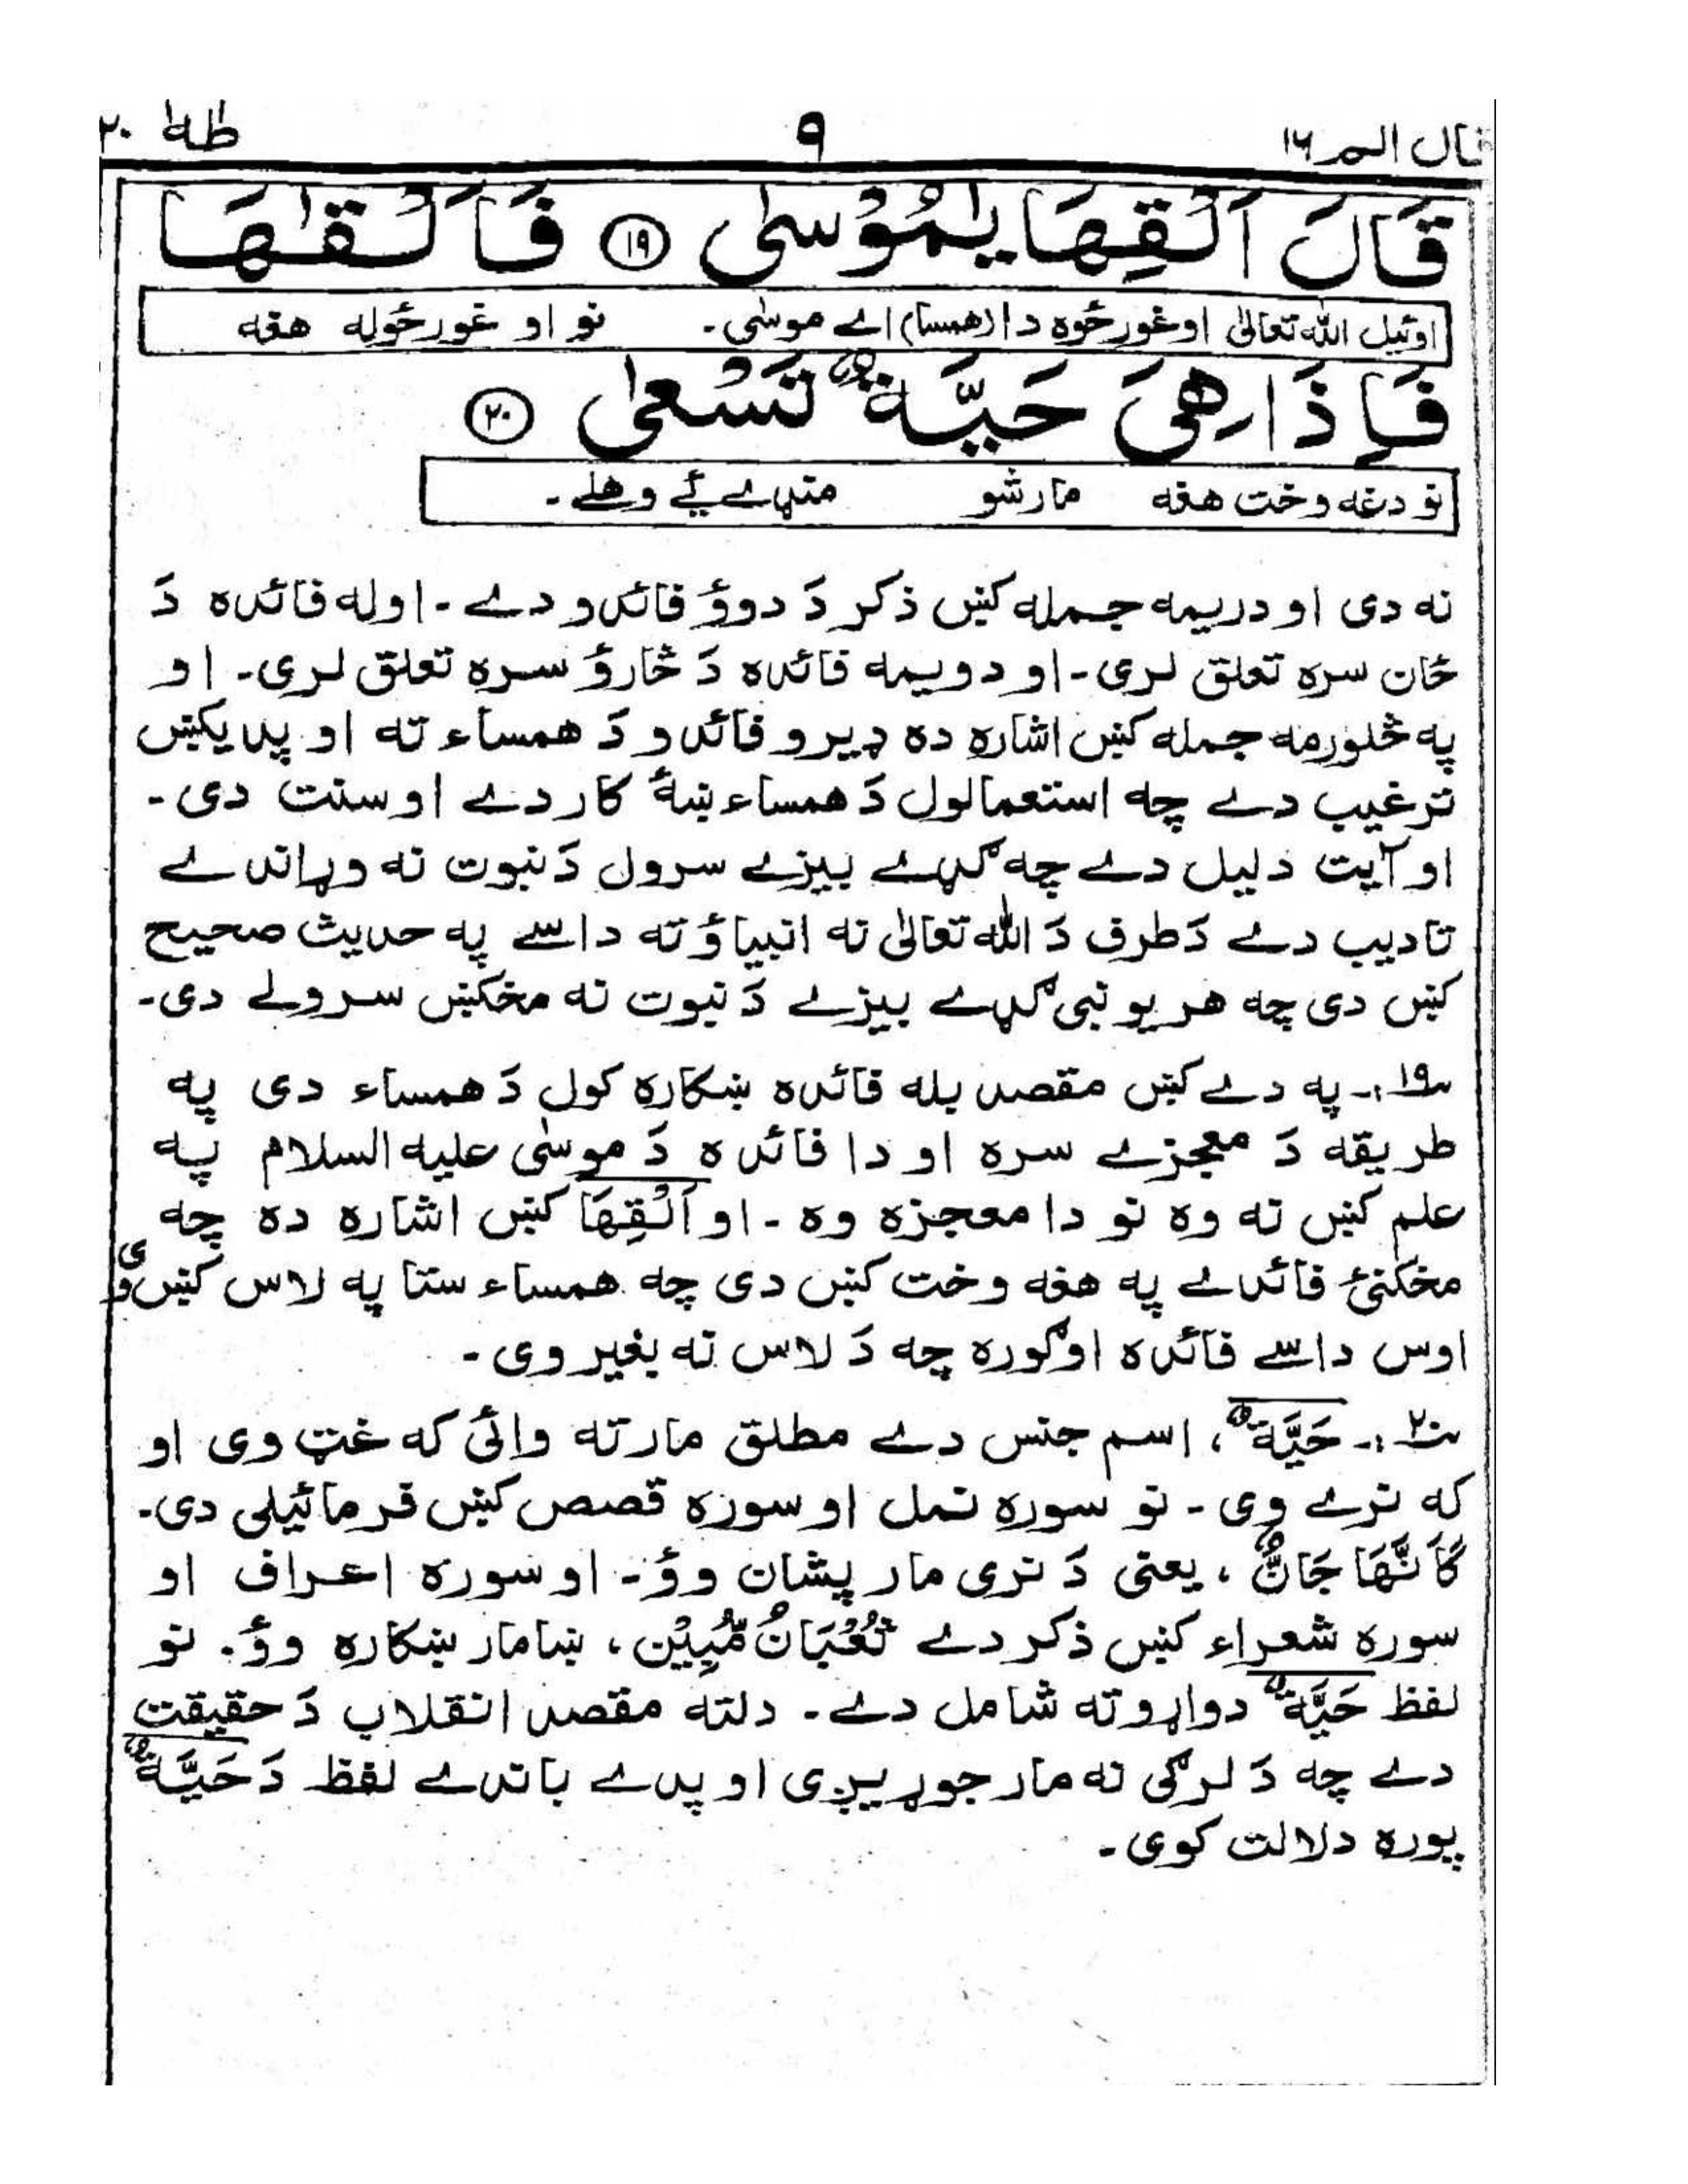 قال الم ١٦ ٩ طٰهٰ ٢٠
قَالَ اَلْقِهَا يٰمُوْسٰى ١٩ فَاَلْقٰىهَا
اوئيل الله تعالىٰ اوغورځوه دا (همسا) اے موسٰى۔ نو او غورځوله هغه
فَاِذَا هِىَ حَيَّةٌ تَسْعٰى ٢٠
نو دغه وخت هغه مار شو منډے ئے وهلے۔
نه دى او دريمه جمله کښ ذکر دَ دوؤ فائدو دے۔ اوله فائده دَ
ځان سره تعلق لرى۔ او دويمه فائده دَ څاروُ سره تعلق لرى۔ او
په څلورمه جمله کښ اشاره ده ډيرو فائدو دَ همساء ته او پديکښ
ترغيب دے چه استعمالول دَ همساء ښهٔ کار دے او سنت دى۔
او آيت دليل دے چه ګډے بيزے سرول دَ نبوت نه وړاندے
تاديب دے دَ طرف دَ الله تعالىٰ نه انبياؤ ته داسے په حديث صحيح
کښ دى چه هر يو نبى ګډے بيزے دَ نبوت نه مخکښ سرولے دى۔
١٩:۔ په دے کښ مقصد بله فائده ښکاره کول دَ همساء دى په
طريقه دَ معجزے سره او دا فائده دَ موسٰى عليه السلام په
علم کښ نه وه نو دا معجزه وه۔ او اَلْقِهَا کښ اشاره ده چه
مخکنئ فائدے په هغه وخت کښ دى چه همساء ستا په لاس کښ وى
اوس داسے فائده اوګوره چه دَ لاس نه بغير وى۔
٢٠:۔ حَيَّةٌ، اسم جنس دے مطلق مار ته وائى که غټ وى او
که نرے وى۔ نو سوره نمل او سوره قصص کښ فرمائيلى دى۔
كَاَنَّهَا جَانٌّ، يعنى دَ نرى مار پشان وؤ۔ او سوره اعراف او
سوره شعراء کښ ذکر دے ثُعْبَانٌ مُّبِيْن، ښامار ښکاره وؤ۔ نو
لفظ حَيَّةٌ دواړو ته شامل دے۔ دلته مقصد انقلاب دَ حقيقت
دے چه دَ لرګى نه مار جوړيږى او پدے باندے لفظ دَ حَيَّةٌ
پوره دلالت کوى۔